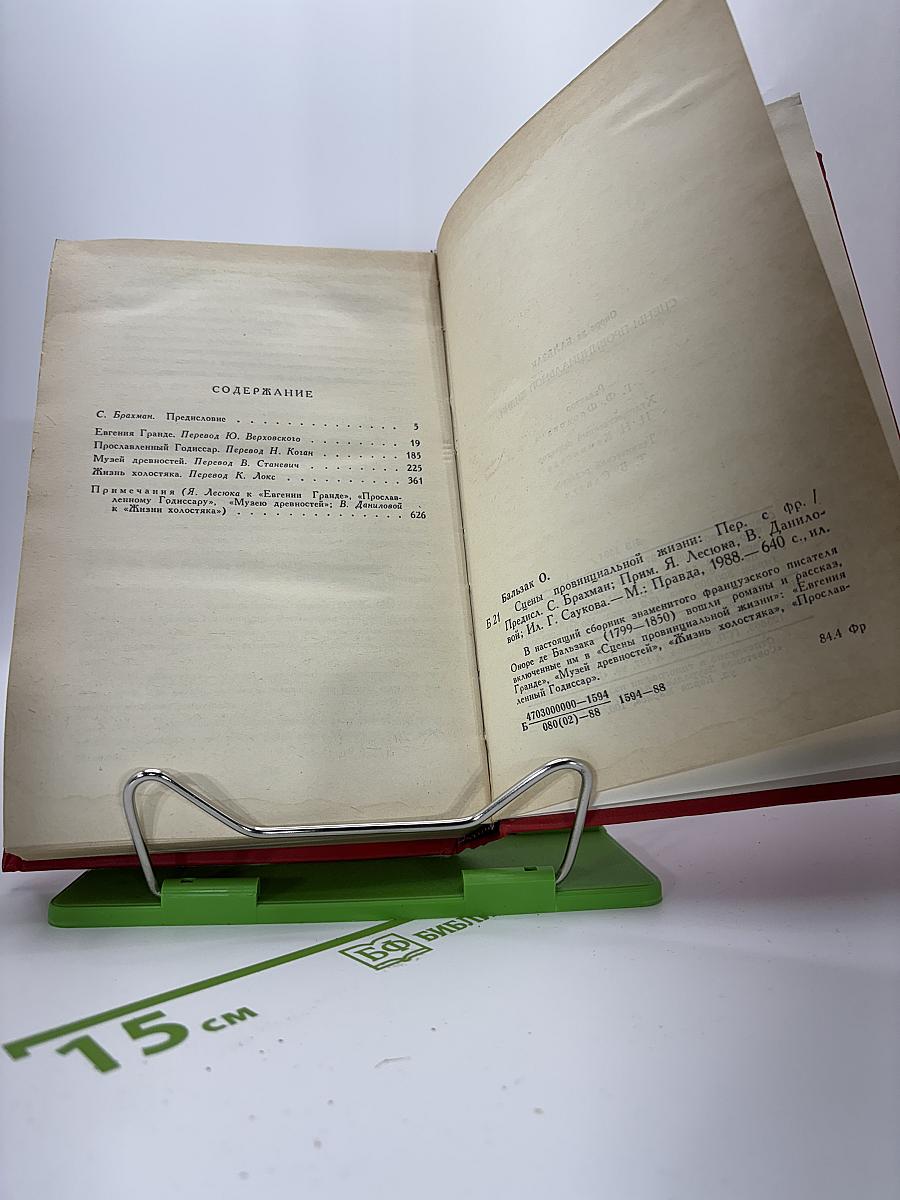 СОДЕРЖАНИЕ
С. Брахман. Предисловие . . . . . . . . . . . . . 5
Евгения Гранде. Перевод Ю. Верховского . . . . . . . . 19
Прославленный Годиссар. Перевод Н. Коган . . . . . . . 185
Музей древностей. Перевод В. Станевич . . . . . . . . 225
Жизнь холостяка. Перевод К. Локс . . . . . . . . . . 361
Примечания (Я. Лесюка к «Евгении Гранде», «Прослав-
ленному Годиссару», «Музею древностей»; В. Даниловой
к «Жизни холостяка») . . . . . . . . . . . . . 626
Бальзак О.
Б 21 Сцены провинциальной жизни: Пер. с фр. /
Предисл. С. Брахман; Прим. Я. Лесюка, В. Данило-
вой; Ил. Г. Саукова.— М.: Правда, 1988.— 640 с., ил.
В настоящий сборник знаменитого французского писателя
Оноре де Бальзака (1799—1850) вошли романы и рассказ,
включенные им в «Сцены провинциальной жизни»: «Евгения
Гранде», «Музей древностей», «Жизнь холостяка», «Прослав-
ленный Годиссар».
4703000000—1594
Б 1594—88
080(02)—88
84.4 Фр
БФ
15 см